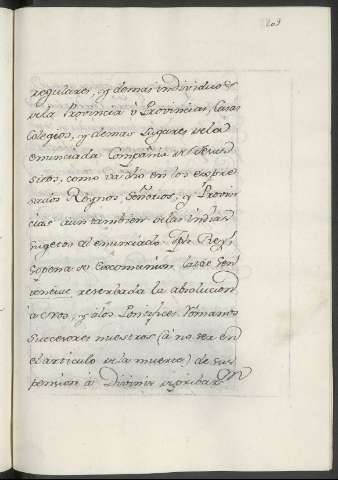 regulares, y demas individuos
de la Provincia ò Provincias, Casas
Colegios, y demas Lugares de la
enunciada Compañia de Jesus
sitos, como va dho en los expre
sados Reynos, Señorios, y Provin
cias aun tambien de las Indias
sugetos al enunciado Rey,
sopena de excomunion latae Sen
tentiae, reserbada la absolucion
à Nos, y a los Pontifices Romanos
Succesores nuestros (à no ser en
el articulo de la muerte) de sus
pension à Divinis